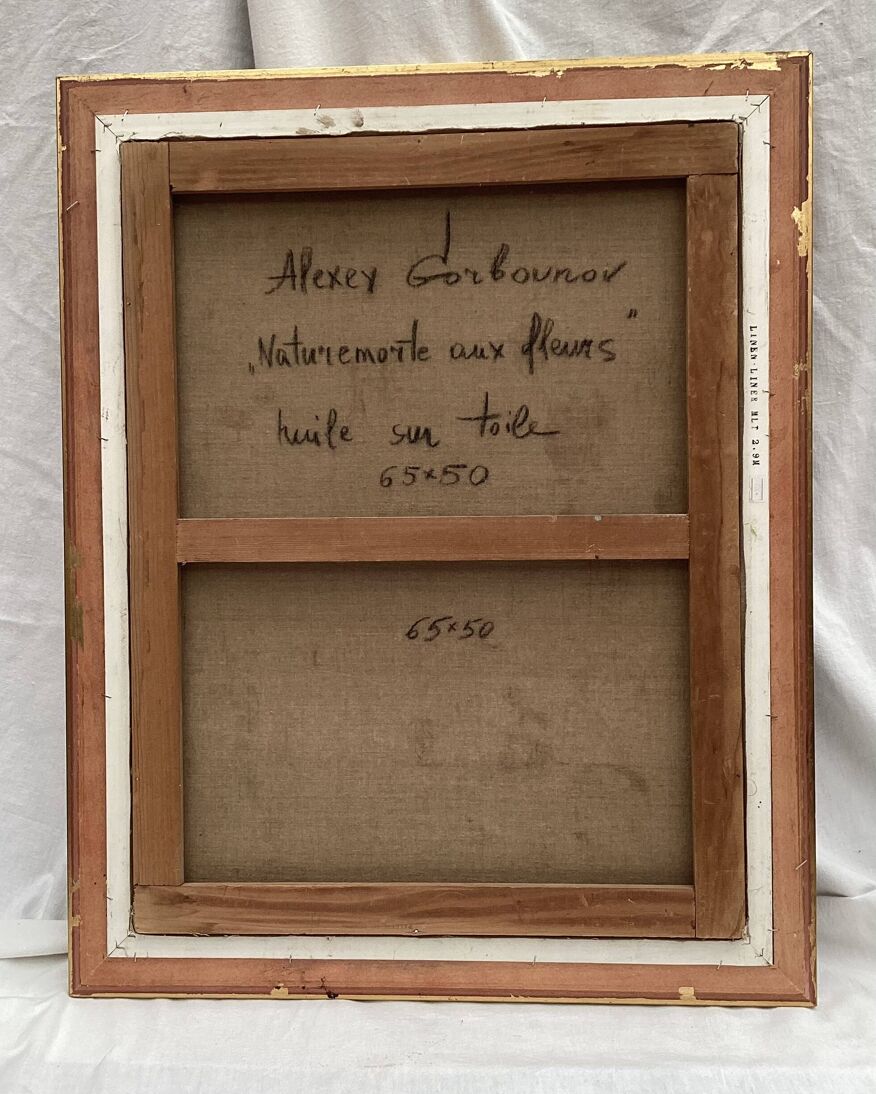 Alexey Gorbounov
„Naturemorte aux fleurs"
huile sur toile
65×50
65×50
LINEN LINER MLT 2.9M